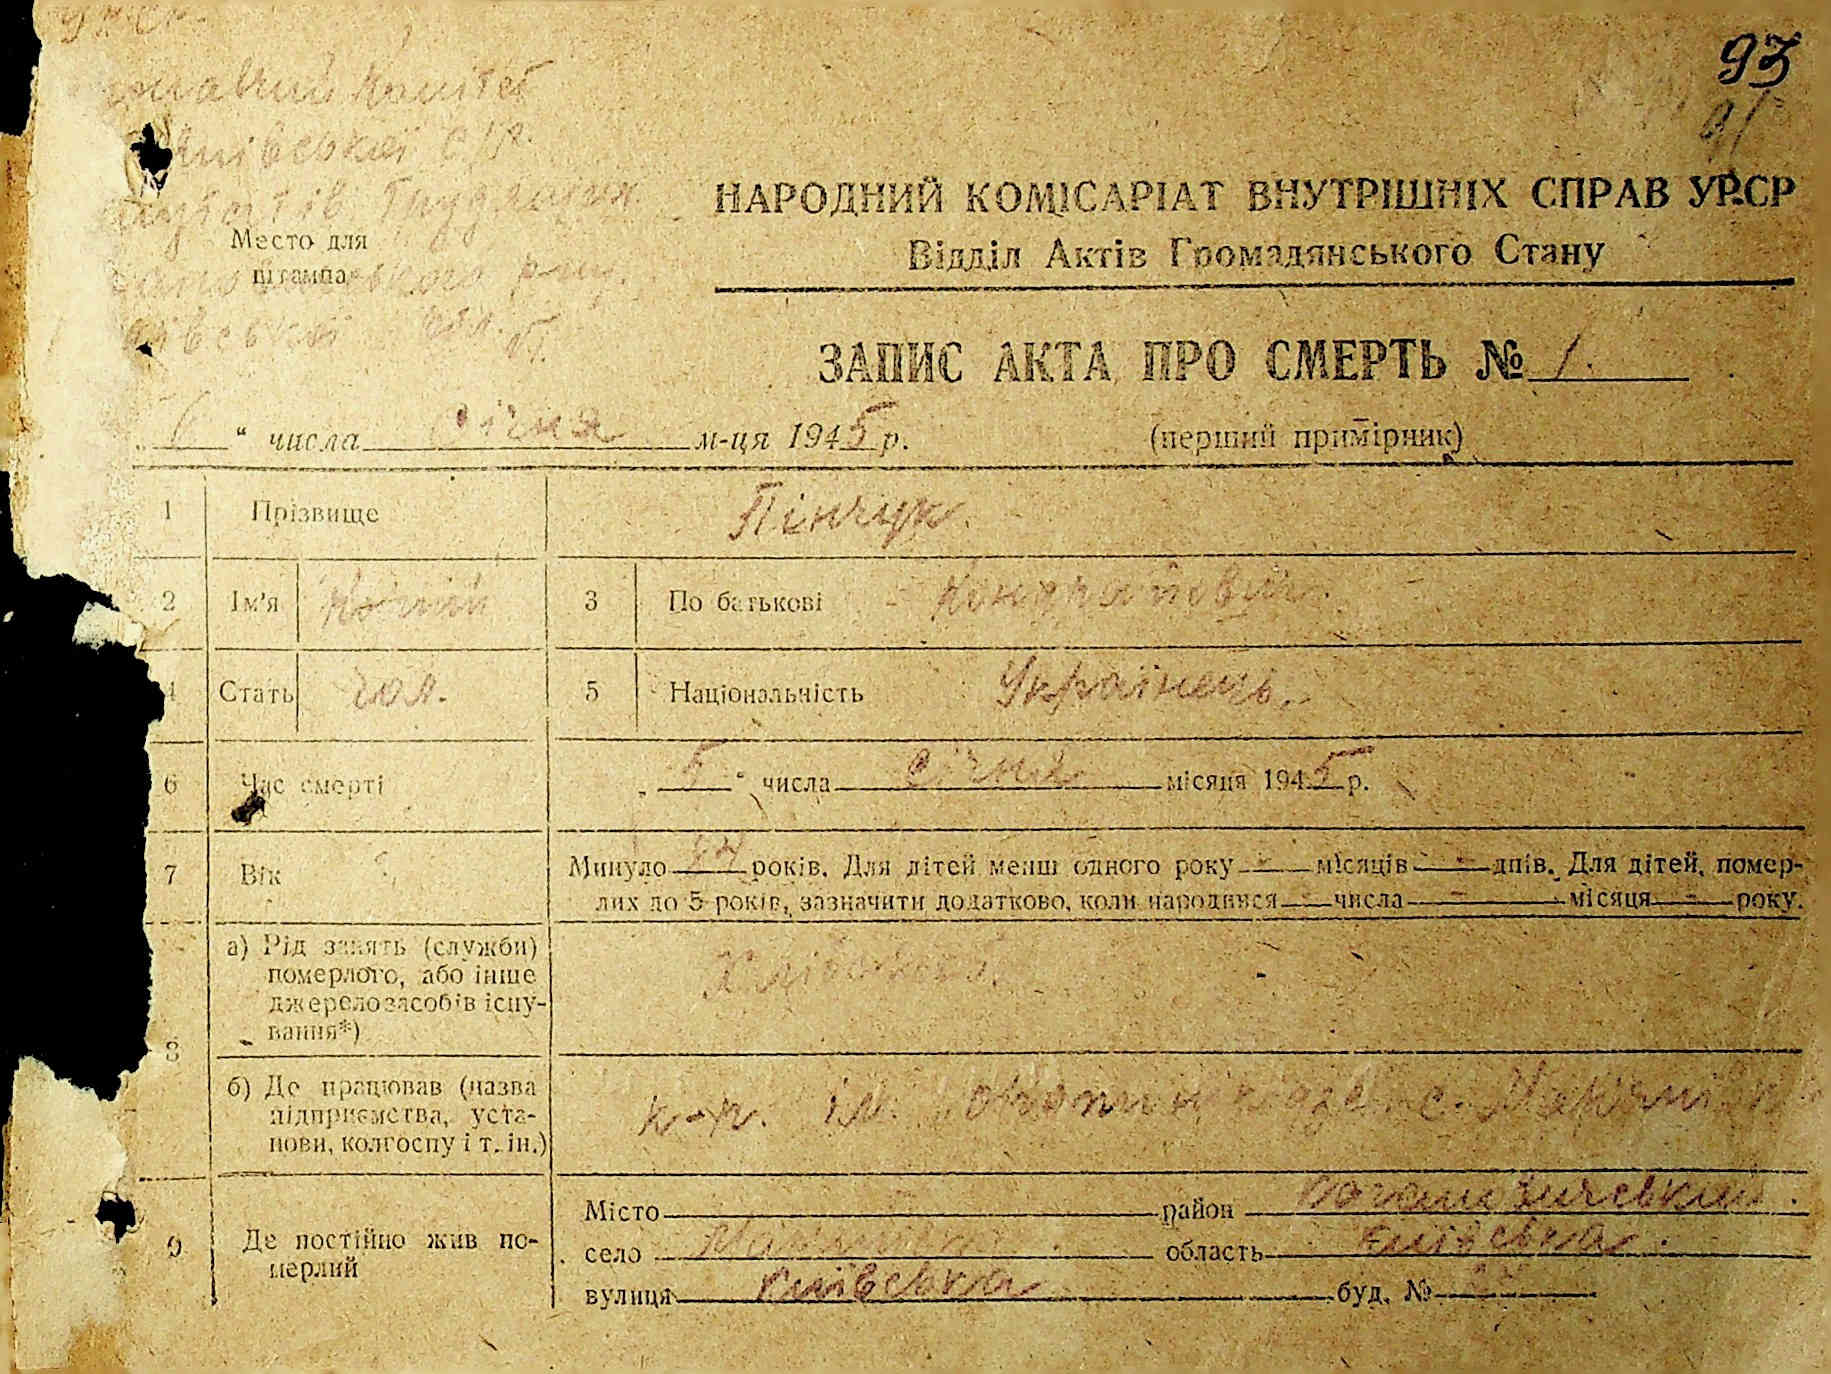 93
91
Комітет
с/р.
НАРОДНИЙ КОМІСАРІАТ ВНУТРІШНІХ СПРАВ УРСР
Место для
Відділ Актів Громадянського Стану
штампа
обл.
ЗАПИС АКТА ПРО СМЕРТЬ № 1.
„6“ числа січня м-ця 1945 р. (перший примірник)
1 Прізвище Пінчук.
2 Ім'я 3 По батькові Кондратович.
4 Стать чол. 5 Національність Українець.
6 Час смерті „5“ числа січня місяця 1945 р.
7 Вік Минуло років. Для дітей менш одного року - місяців - днів. Для дітей, помер-
лих до 5 років, зазначити додатково, коли народився - числа - місяця - року.
8 а) Рід занять (служби)
померлого, або інше
джерело засобів існу-
вання*)
Хлібороб.
б) Де працював (назва
підприємства, уста-
нови, колгоспу і т. ін.)
к-п. ім. с.
9 Де постійно жив по-
мерлий
Місто район Кагановичський.
село область Київська.
вулиця Київська буд. №